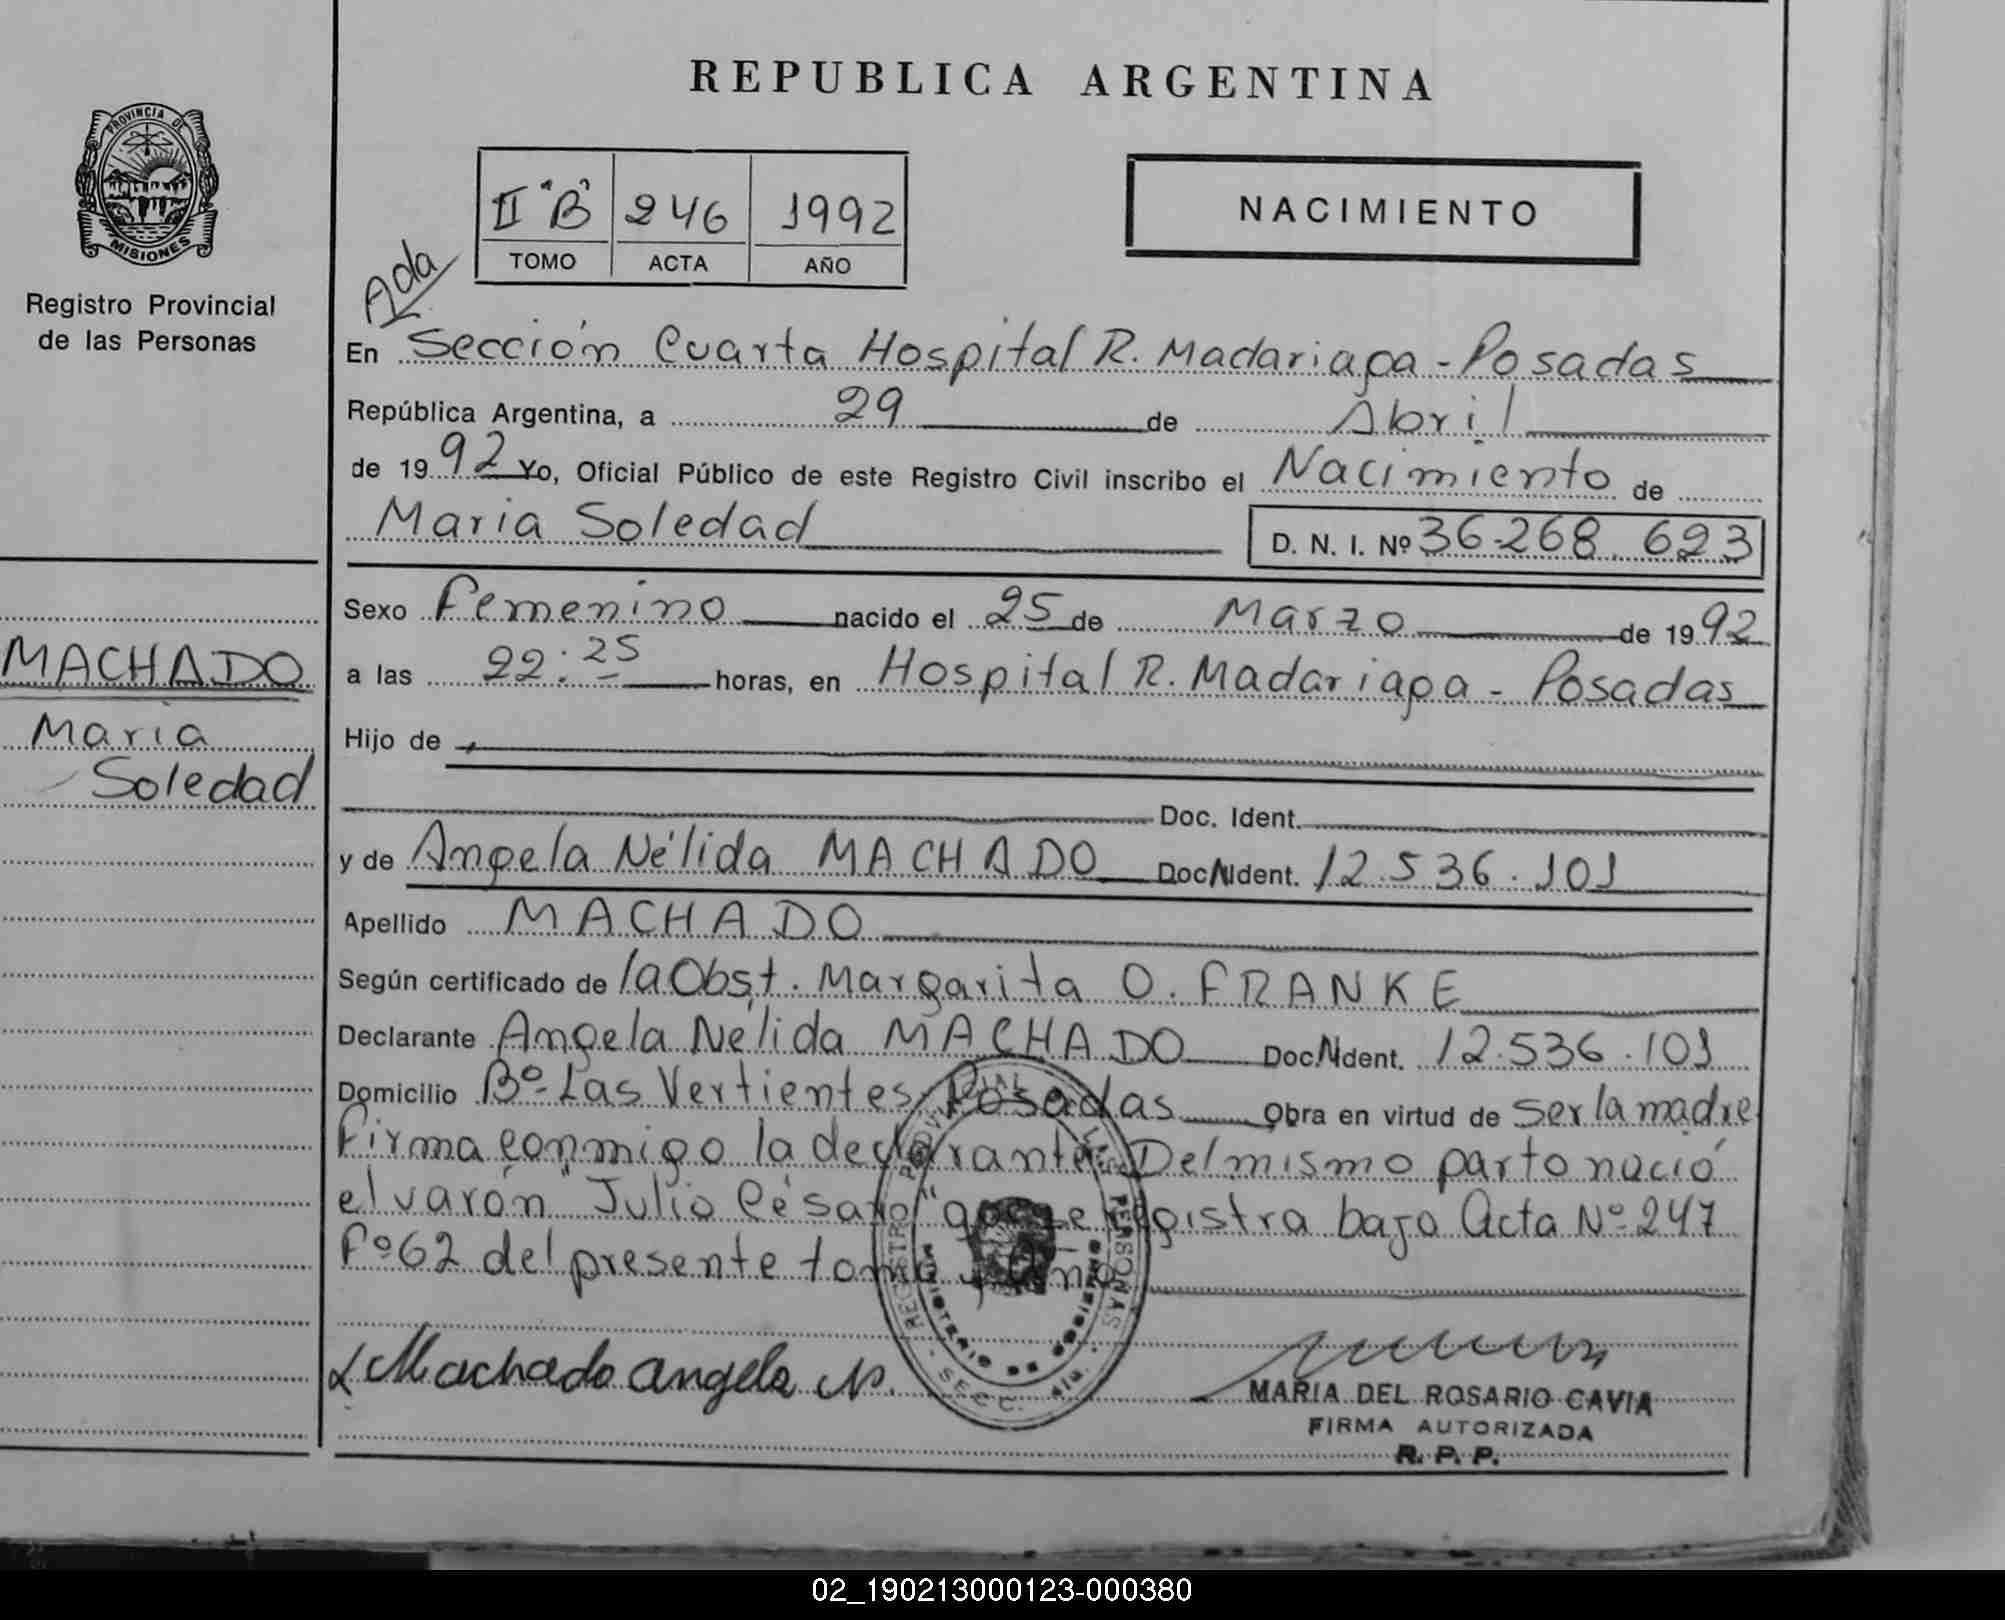 REPUBLICA ARGENTINA
PROVINCIA DE
MISIONES
Registro Provincial
de las Personas
II "B" 246 1992
TOMO ACTA AÑO
NACIMIENTO
Ada
En Sección Cuarta Hospital R. Madariaga - Posadas
República Argentina, a 29 de Abril
de 1992 Yo, Oficial Público de este Registro Civil inscribo el Nacimiento de
Maria Soledad D. N. I. Nº 36.268.623
Sexo Femenino nacido el 25 de Marzo de 1992
MACHADO
Maria
Soledad
a las 22:25 horas, en Hospital R. Madariaga - Posadas
Hijo de
Doc. Ident.
y de Angela Nélida MACHADO Doc. Ident. 12.536.101
Apellido MACHADO
Según certificado de la Obst. Margarita O. FRANKE
Declarante Angela Nélida MACHADO Doc. Ident. 12.536.101
Domicilio Bº Las Vertientes, Posadas Obra en virtud de ser la madre
Firma conmigo la declarante. Del mismo parto nació
el varón "Julio César" que se registra bajo Acta Nº 247
Fº 62 del presente tomo y año
REGISTRO PROVINCIAL DE LAS PERSONAS
MINISTERIO DE GOBIERNO
SECC. 4ta.
Machado Angela N.
MARIA DEL ROSARIO CAVIA
FIRMA AUTORIZADA
R. P. P.
02_190213000123-000380